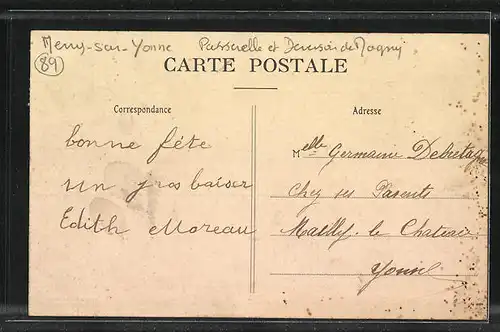 Merry-sur-Yonne Passerelle et Déversoir de Magny
89
CARTE POSTALE
Correspondance
Adresse
bonne fête
un gros baiser
Edith Moreau
Melle Germaine
Chez ses Parents
Mailly-le Chateau
Yonne